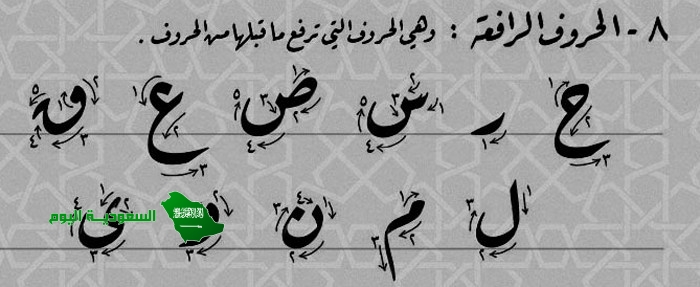 ٨ - الحروف الرافعة : وهي الحروف التي ترفع ما قبلها من الحروف .
ح ر س ص ع ق
ل م ن ي
السعودية اليوم